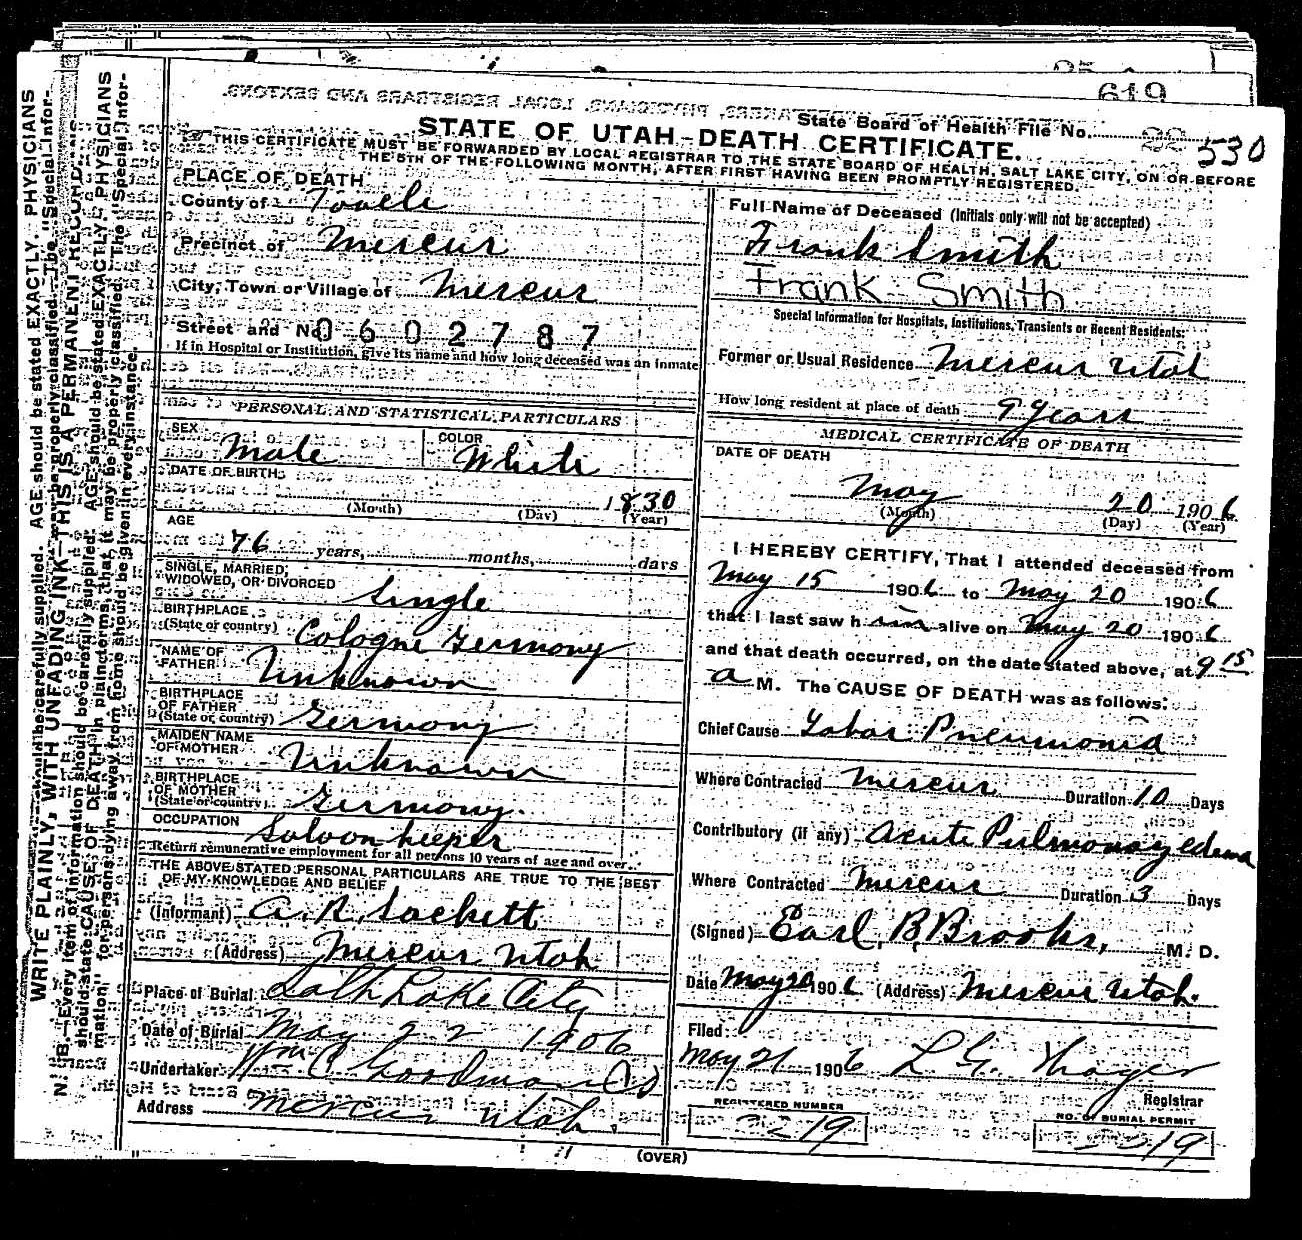 619
State Board of Health File No. 22 530
STATE OF UTAH-DEATH CERTIFICATE.
THIS CERTIFICATE MUST BE FORWARDED BY LOCAL REGISTRAR TO THE STATE BOARD OF HEALTH, SALT LAKE CITY, ON OR BEFORE
THE 5TH OF THE FOLLOWING MONTH, AFTER FIRST HAVING BEEN PROMPTLY REGISTERED.
PLACE OF DEATH
County of Tooele
Precinct of Mercur
City, Town or Village of Mercur
Street and No. 0602787
If in Hospital or Institution, give its name and how long deceased was an inmate
PERSONAL AND STATISTICAL PARTICULARS
SEX Male COLOR White
DATE OF BIRTH 1830
(Month) (Day) (Year)
AGE
76 years, months, days
SINGLE, MARRIED,
WIDOWED, OR DIVORCED Single
BIRTHPLACE
(State or country) Cologne Germony
NAME OF
FATHER Unknown
BIRTHPLACE
OF FATHER
(State or country) Germony
MAIDEN NAME
OF MOTHER Unknown
BIRTHPLACE
OF MOTHER
(State or country) Germony
OCCUPATION Saloon keeper
Return remunerative employment for all persons 10 years of age and over.
THE ABOVE STATED PERSONAL PARTICULARS ARE TRUE TO THE BEST
OF MY KNOWLEDGE AND BELIEF
(Informant) A. R. Sackett
(Address) Mercur Utah
Place of Burial Salt Lake City
Date of Burial May 22 1906
Undertaker Wm C Goodman
Address Mercur Utah.
Full Name of Deceased (Initials only will not be accepted)
Frank Smith
Frank Smith
Special Information for Hospitals, Institutions, Transients or Recent Residents:
Former or Usual Residence Mercur Utah
How long resident at place of death 9 Years
MEDICAL CERTIFICATE OF DEATH
DATE OF DEATH
May 20 1906
(Month) (Day) (Year)
I HEREBY CERTIFY, That I attended deceased from
May 15 1906 to May 20 1906
that I last saw him alive on May 20 1906
and that death occurred, on the date stated above, at 9 15
a M. The CAUSE OF DEATH was as follows:
Chief Cause Lobar Pneumonia
Where Contracted Mercur Duration 10 Days
Contributory (if any) Acute Pulmonary edema
Where Contracted Mercur Duration 3 Days
(Signed) Earl B. Brooks, M. D.
Date May 20 1906 (Address) Mercur Utah.
Filed
May 21 1906 L. G.
Registrar
REGISTERED NUMBER
219
NO. OF BURIAL PERMIT
219
(OVER)
WRITE PLAINLY, WITH UNFADING INK-THIS IS A PERMANENT RECORD.
N. B.-Every item of information should be carefully supplied. AGE should be stated EXACTLY. PHYSICIANS
should state CAUSE OF DEATH in plain terms, that it may be properly classified. The "Special Infor-
mation" for persons dying away from home should be given in every instance.